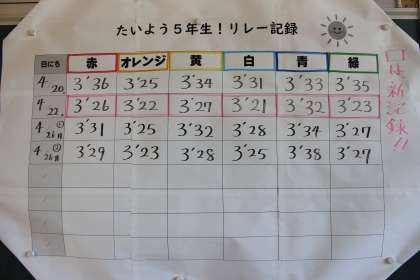 たいよう5年生！リレー記録
日にち 赤 オレンジ 黄 白 青 緑
4/20 3'36 3'25 3'34 3'31 3'33 3'35
4/22 3'26 3'22 3'27 3'21 3'32 3'23
4/26 ① 3'31 3'25 3'32 3'28 3'34 3'27
4/26 ② 3'29 3'23 3'28 3'25 3'38 3'27
□は新記録!!